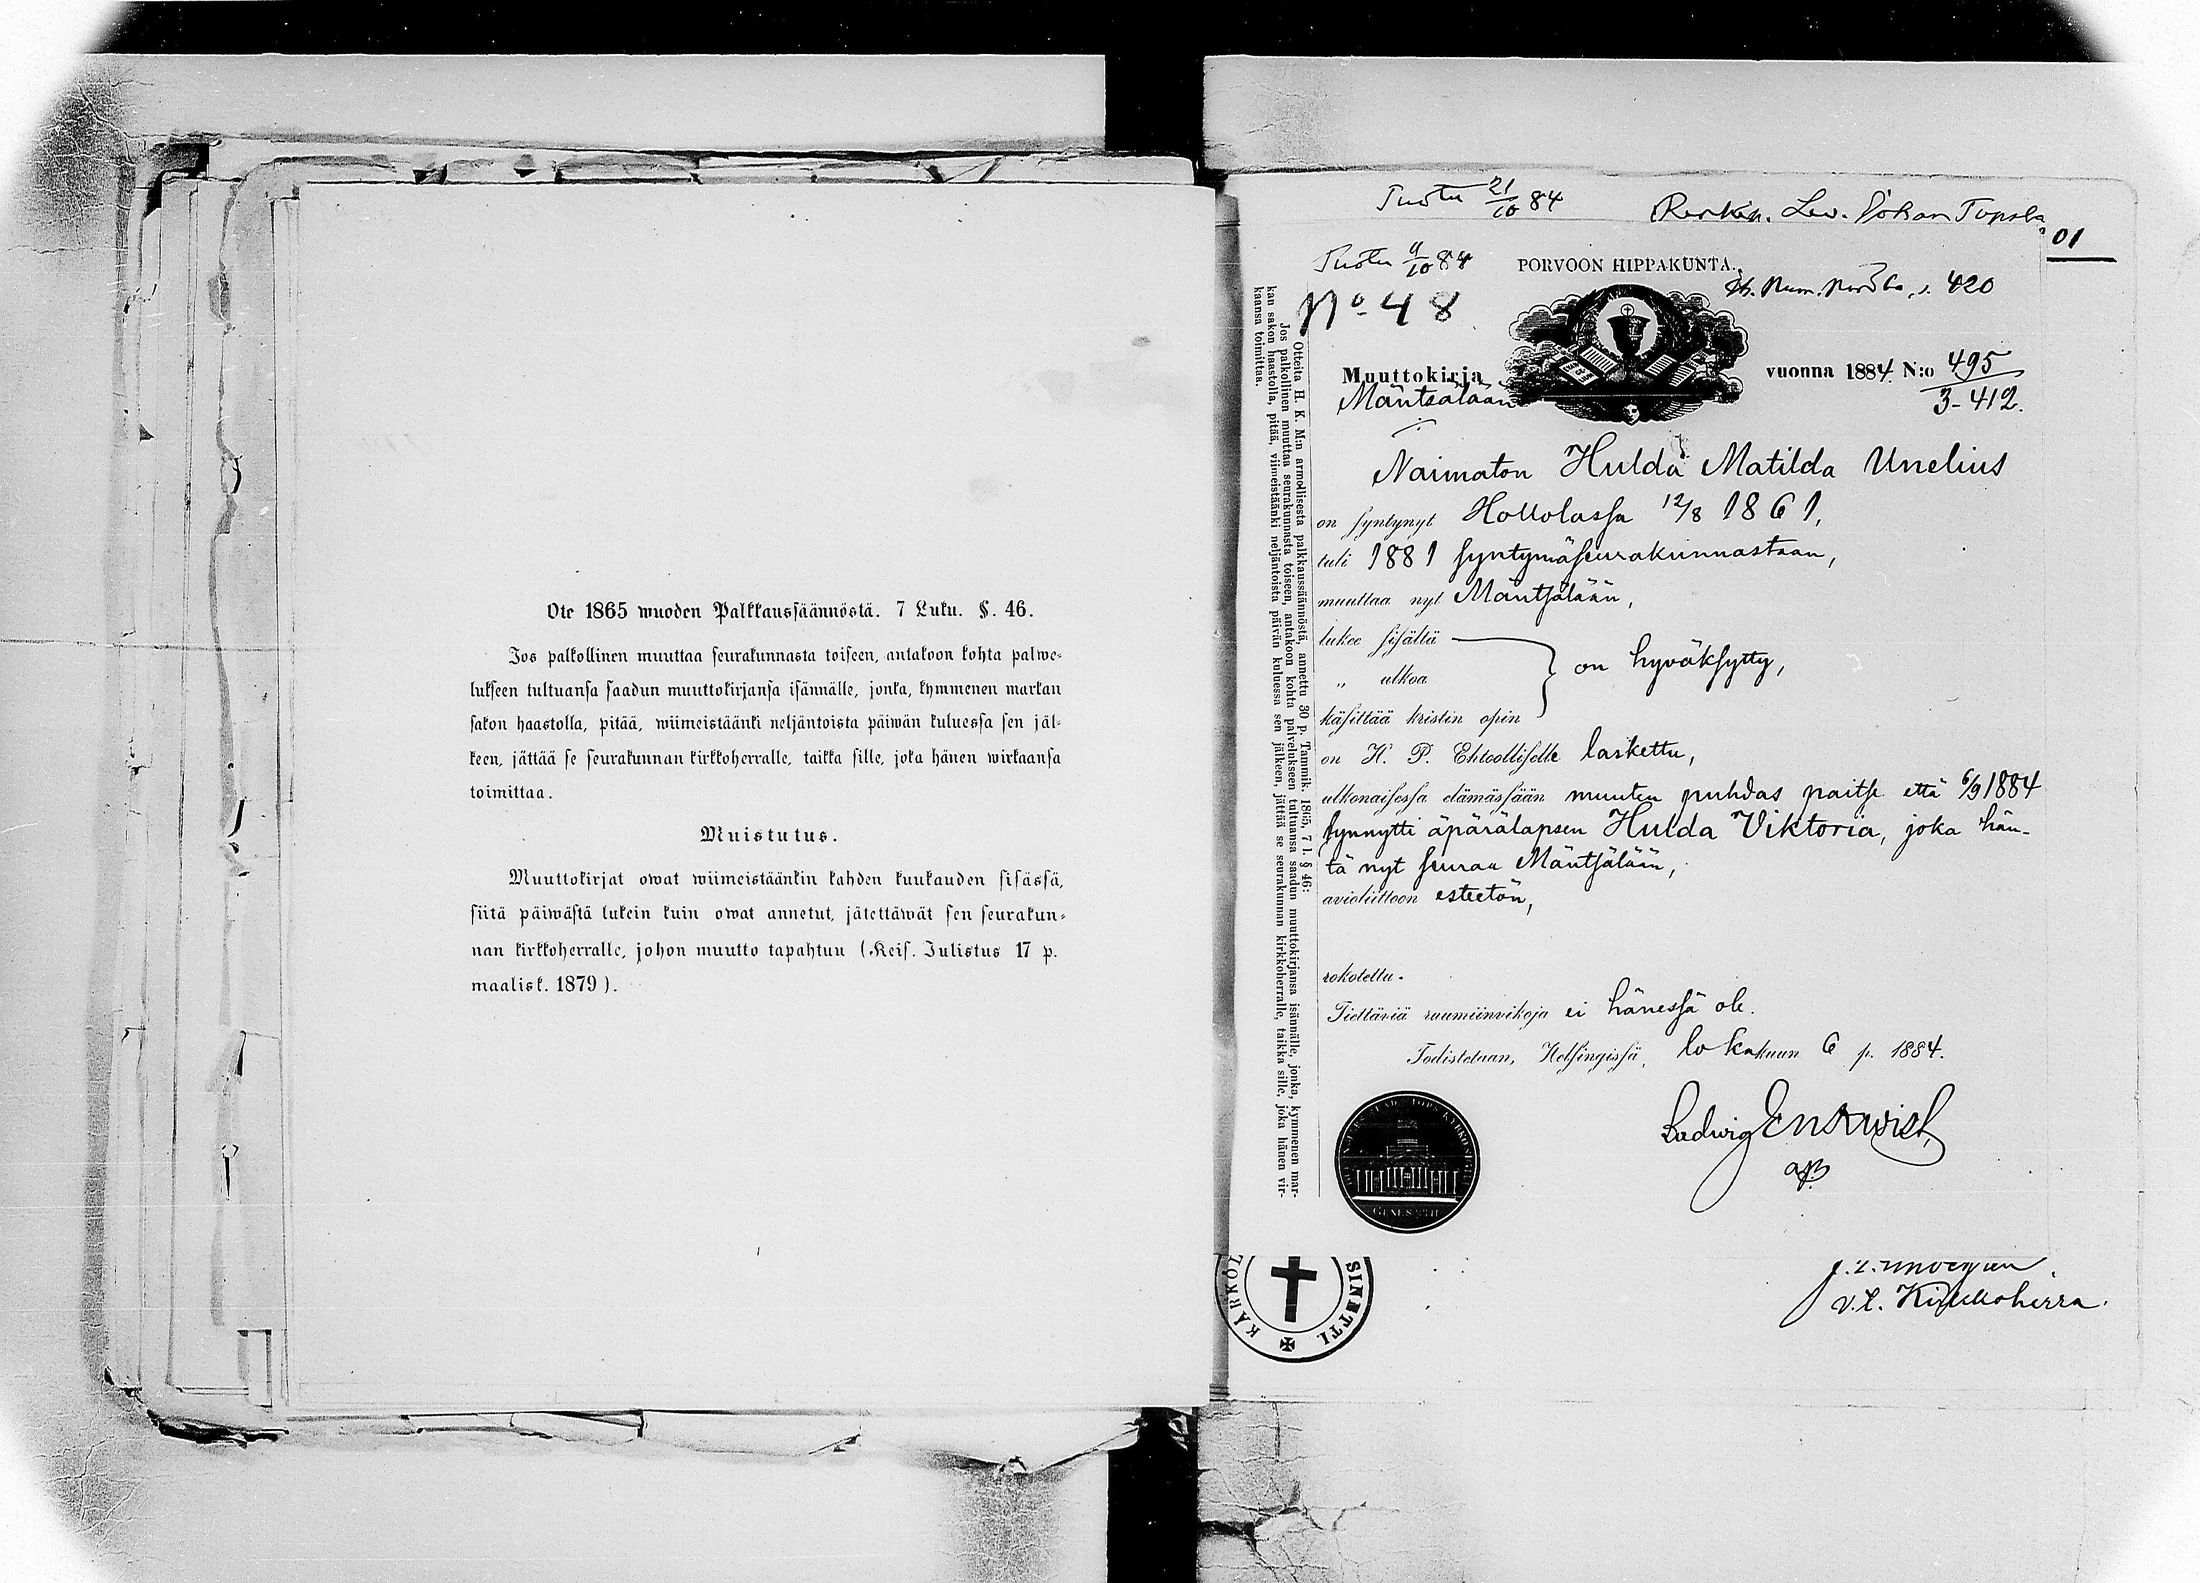 Ote 1865 wuoden Palkkaussäännöstä. 7 Luku. §. 46.
Jos palkollinen muuttaa seurakunnasta toiseen, antakoon kohta palwe-
lukseen tultuansa saadun muuttokirjansa isännälle, jonka, kymmenen markan
sakon haastolla, pitää, wiimeistäänki neljäntoista päiwän kuluessa sen jäl-
keen, jättää se seurakunnan kirkkoherralle, taikka sille, joka hänen wirkaansa
toimittaa.
Muistutus.
Muuttokirjat owat wiimeistäänkin kahden kuukauden sisässä,
siitä päiwästä lukein kuin owat annetut, jätettäwät sen seurakun-
nan kirkkoherralle, johon muutto tapahtuu (Keis. Julistus 17 p.
maalisk. 1879).
Tuotu 21/10 84
01
Tuotu 11/10 84
PORVOON HIPPAKUNTA.
s. 420
No 48
Muuttokirja
vuonna 1884 N:o 495
Mäntsälään
3-412.
Naimaton Hulda Matilda Unelius
on syntynyt Hollolassa 12/8 1861,
tuli 1881 syntymäseurakunnastaan,
muuttaa nyt Mäntsälään,
lukee sisältä
on hyväksytty,
„ ulkoa
käsittää kristin opin
on H. P. Ehtoolliselle laskettu,
ulkonaisessa elämässään muuten puhdas paitse että 6/9 1884
synnytti äpärälapsen Hulda Viktoria, joka hän-
tä nyt seuraa Mäntsälään,
avioliittoon esteetön,
rokotettu.
Tiettäviä ruumiinvikoja ei hänessä ole.
Todistetaan, Helsingissä, lokakuun 6 p. 1884.
Ludwig Enqwist
Otteita H. K. M:n armollisesta palkkaussäännöstä, annettu 30 p. Tammik. 1865, 7 l. § 46:
Jos palkollinen muuttaa seurakunnasta toiseen, antakoon kohta palvelukseen tultuansa saadun muuttokirjansa isännälle, jonka, kymmenen mar-
kan sakon haastolla, pitää, viimeistäänki neljäntoista päivän kuluessa sen jälkeen, jättää se seurakunnan kirkkoherralle, taikka sille, joka hänen vir-
kaansa toimittaa.
v.t. Kirkkoherra.